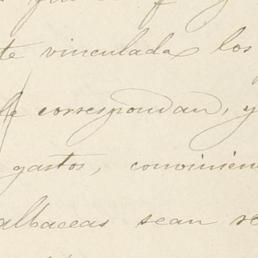 te vinculada los
correspondan, y
gastos, convinien
albaceas sean re